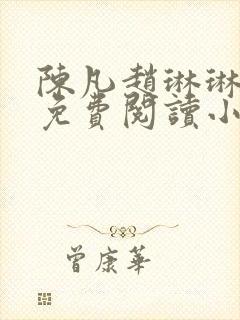 陳凡趙琳琳
免費閱讀小
曾康華